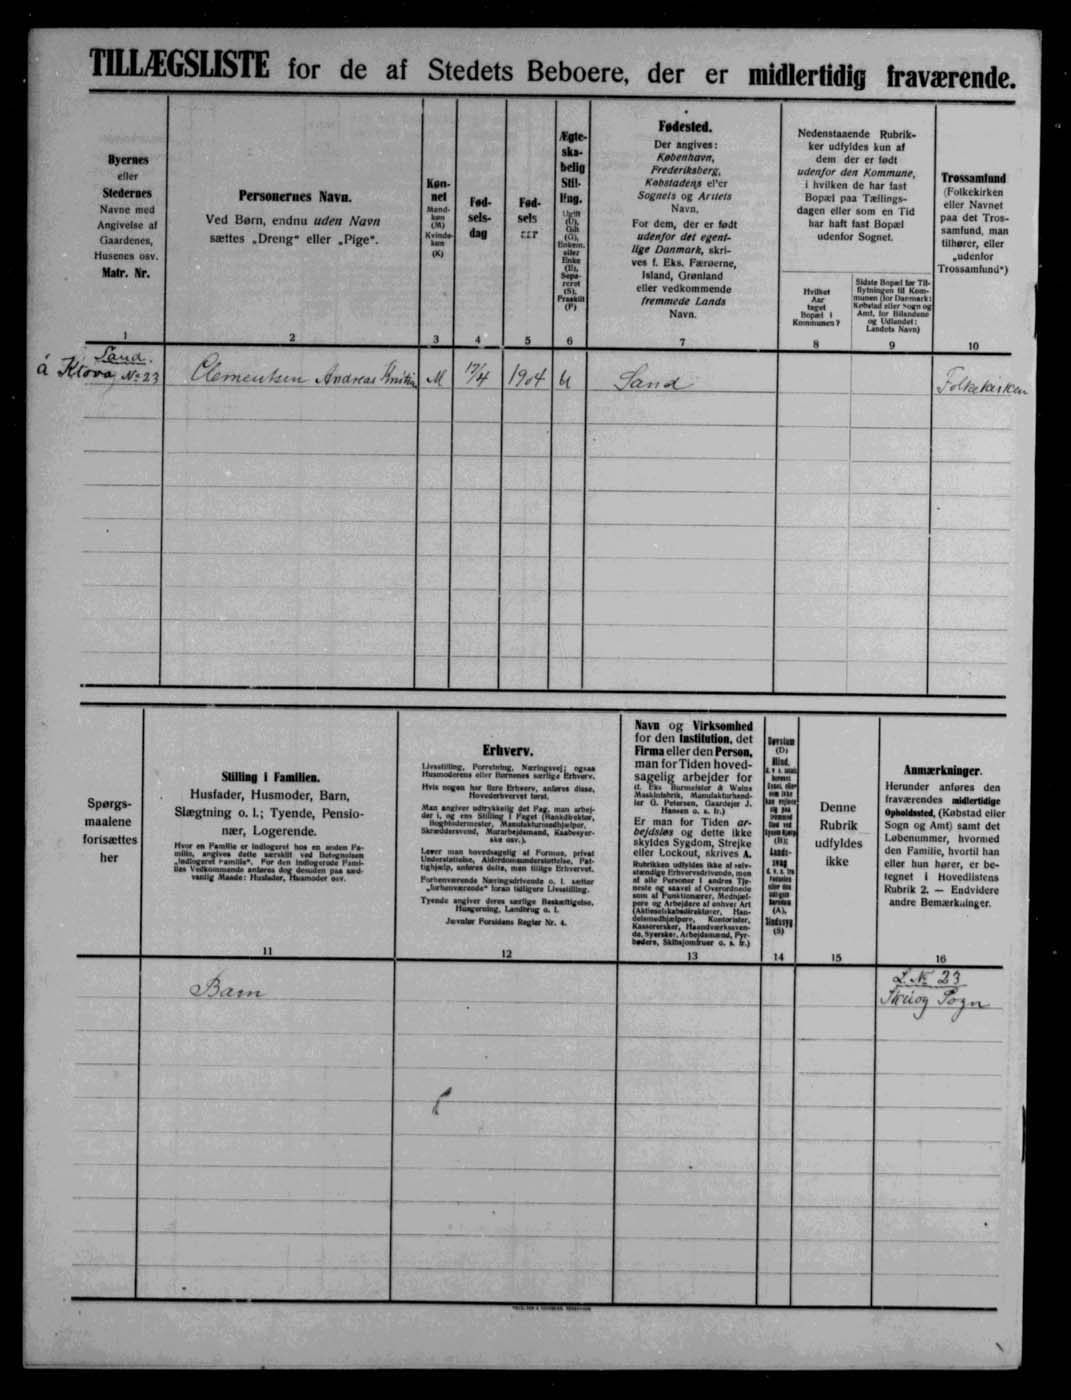 TILLÆGSLISTE for de af Stedets Beboere, der er midlertidig fraværende.
Byernes
eller
Stedernes
Navne med
Angivelse af
Gaardenes,
Husenes osv.
Matr. Nr.
1
Personernes Navn.
Ved Børn, endnu uden Navn
sættes „Dreng“ eller „Pige“.
2
Køn-
net
Mand-
køn
(M)
Kvinde-
køn
(K)
3
Fød-
sels-
dag
4
Fød-
sels
aar
5
Ægte-
ska-
belig
Stil-
ling.
Ugift
(U),
Gift
(G),
Enkem.
eller
Enke
(E),
Sepa-
reret
(S),
Fraskilt
(F)
6
Fødested.
Der angives:
København,
Frederiksberg,
Købstadens eller
Sognets og Amtets
Navn.
For dem, der er født
udenfor det egent-
lige Danmark, skri-
ves f. Eks. Færøerne,
Island, Grønland
eller vedkommende
fremmede Lands
Navn.
7
Nedenstaaende Rubrik-
ker udfyldes kun af
dem der er født
udenfor den Kommune,
i hvilken de har fast
Bopæl paa Tællings-
dagen eller som en Tid
har haft fast Bopæl
udenfor Sognet.
Hvilket
Aar
taget
Bopæl i
Kommunen?
8
Sidste Bopæl før Til-
flytningen til Kom-
munen (for Danmark:
Købstad eller Sogn og
Amt, for Bilandene
og Udlandet:
Landets Navn)
9
Trossamfund
(Folkekirken
eller Navnet
paa det Tros-
samfund, man
tilhører, eller
„udenfor
Trossamfund“)
10
Sand.
á Krova No 23
Clementsen Andreas
M
1904
U
Sand
Folkekirken
Spørgs-
maalene
forisættes
her
Stilling i Familien.
Husfader, Husmoder, Barn,
Slægtning o. l.; Tyende, Pensio-
nær, Logerende.
Hvor en Familie er indlogeret hos en anden Fa-
milie, angives dette særskilt ved Betegnelsen
„Indlogeret Familie“. For den indlogerede Fami-
lies Vedkommende anføres dog desuden paa sæd-
vanlig Maade: Husfader, Husmoder osv.
11
Erhverv.
Livsstilling, Forretning, Næringsvej; ogsaa
Husmoderens eller Børnenes særlige Erhverv.
Hvis nogen har flere Erhverv, anføres disse,
Hovederhvervet først.
Man angiver udtrykkelig det Fag, man arbej-
der i, og ens Stilling i Faget (Bankdirektør,
Bogbindermester, Manufakturmedhjælper,
Skræddersvend, Murarbejdsmand, Kaabesyer-
ske osv.).
Lever man hovedsagelig af Formue, privat
Understøttelse, Alderdomsunderstøttelse, Fat-
tighjælp, anføres dette, men tillige Erhvervet.
Forhenværende Næringsdrivende o. l. sætter
„forhenværende“ foran tidligere Livsstilling.
Tyende angiver deres særlige Beskæftigelse,
Husgerning, Landbrug o. l.
Jævnfør Forsidens Regler Nr. 4.
12
Navn og Virksomhed
for den Institution, det
Firma eller den Person,
man for Tiden hoved-
sagelig arbejder for
(f. Eks Burmeister & Wains
Maskinfabrik, Manufakturhand-
ler G. Petersen, Gaardejer J.
Hansen o. s. fr.)
Er man for Tiden ar-
bejdsløs og dette ikke
skyldes Sygdom, Strejke
eller Lockout, skrives A.
Rubrikken udfyldes ikke af selv-
stændige Erhvervsdrivende, men
af alle Personer i andres Tje-
neste og saavel af Overordnede
som af Funktionærer, Medhjæl-
pere og Arbejdere af enhver Art
(Aktieselskabsdirektører, Han-
delsmedhjælpere, Kontorister,
Kassererske, Haandværkssven-
de, Syersker, Arbejdsmænd, Fyr-
bødere, Skibsjomfruer o. s. fr.)
13
Døvstum
(D)
Blind,
(B);
Aands-
svag
(A),
Sindssyg
(S)
14
Denne
Rubrik
udfyldes
ikke
15
Anmærkninger.
Herunder anføres den
fraværendes midlertidige
Opholdssted, (Købstad eller
Sogn og Amt) samt det
Løbenummer, hvormed
den Familie, hvortil han
eller hun hører, er be-
tegnet i Hovedlistens
Rubrik 2. — Endvidere
andre Bemærkninger.
16
Barn
L. No 23
Sogn